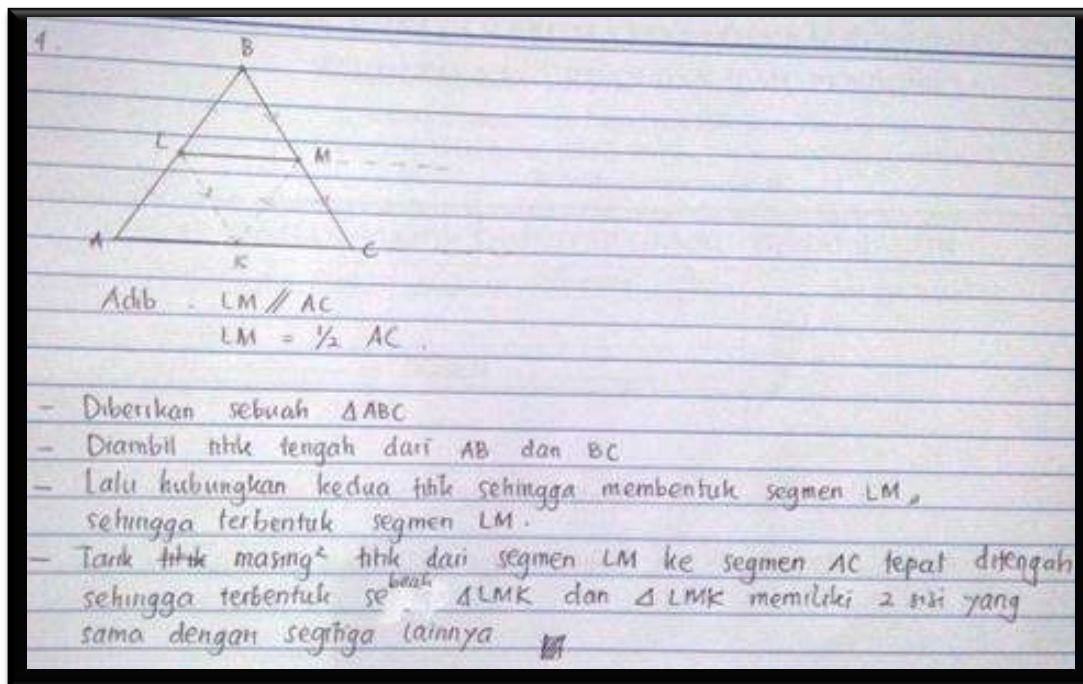 4.
B
L M
A K C
Adib . LM // AC
LM = 1/2 AC .
- Diberikan sebuah Δ ABC
- Diambil titik tengah dari AB dan BC
- Lalu hubungkan kedua titik sehingga membentuk segmen LM,
sehingga terbentuk segmen LM.
- Tarik titik masing² titik dari segmen LM ke segmen AC tepat ditengah
sehingga terbentuk sebuah Δ LMK dan Δ LMK memiliki 2 sisi yang
sama dengan segitiga lainnya